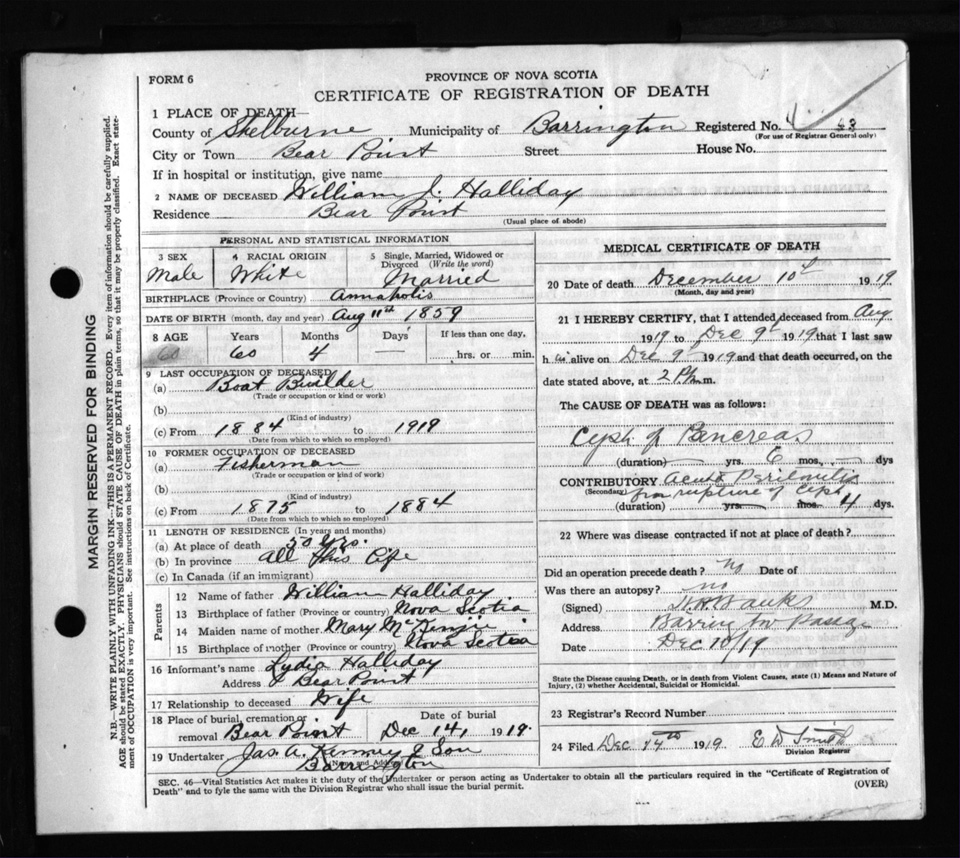 FORM 6
PROVINCE OF NOVA SCOTIA
CERTIFICATE OF REGISTRATION OF DEATH
1 PLACE OF DEATH—
County of Shelburne Municipality of Barrington Registered No. 4
(For use of Registrar General only)
City or Town Bear Point Street House No.
If in hospital or institution, give name
2 NAME OF DECEASED William J. Halliday
Residence Bear Point
(Usual place of abode)
PERSONAL AND STATISTICAL INFORMATION
3 SEX 4 RACIAL ORIGIN 5 Single, Married, Widowed or Divorced (Write the word)
Male White Married
BIRTHPLACE (Province or Country) Annapolis
DATE OF BIRTH (month, day and year) Aug 11th 1859
8 AGE Years Months Days If less than one day,
60 60 4 — hrs. or min.
9 LAST OCCUPATION OF DECEASED
(a) Boat Builder
(Trade or occupation or kind or work)
(b)
(Kind of industry)
(c) From 1884 to 1919
(Date from which to which so employed)
10 FORMER OCCUPATION OF DECEASED
(a) Fisherman
(Trade or occupation or kind of work)
(b)
(Kind of industry)
(c) From 1875 to 1884
(Date from which to which so employed)
11 LENGTH OF RESIDENCE (In years and months)
(a) At place of death 50 yrs.
(b) In province all this life
(c) In Canada (if an immigrant)
Parents
12 Name of father William Halliday
13 Birthplace of father (Province or country) Nova Scotia
14 Maiden name of mother Mary McKenzie
15 Birthplace of mother (Province or country) Nova Scotia
16 Informant's name Lydia Halliday
Address Bear Point
17 Relationship to deceased Wife
18 Place of burial, cremation or removal Bear Point Date of burial Dec 14, 1919.
19 Undertaker Jas. A. Kenney & Son
(Name and Address)
Barrington
MEDICAL CERTIFICATE OF DEATH
20 Date of death December 10th 1919
(Month, day and year)
21 I HEREBY CERTIFY, that I attended deceased from Aug
1919 to Dec 9th 1919 that I last saw
h im alive on Dec 9th 1919 and that death occurred, on the
date stated above, at 2 P.m.
The CAUSE OF DEATH was as follows:
Cyst of Pancreas
(duration) — yrs. 6 mos. — dys
CONTRIBUTORY acute Peritonitis
(Secondary) from rupture of cyst
(duration) yrs. mos. 4 dys.
22 Where was disease contracted if not at place of death?
Did an operation precede death? No Date of
Was there an autopsy? no
(Signed) Banks M.D.
Address Barrington Passage
Date Dec 10/19
State the Disease causing Death, or in death from Violent Causes, state (1) Means and Nature of Injury, (2) whether Accidental, Suicidal or Homicidal.
23 Registrar's Record Number
24 Filed Dec 14th 1919 E D Smith
Division Registrar
SEC. 46—Vital Statistics Act makes it the duty of the Undertaker or person acting as Undertaker to obtain all the particulars required in the "Certificate of Registration of
Death" and to fyle the same with the Division Registrar who shall issue the burial permit. (OVER)
MARGIN RESERVED FOR BINDING
N.B.—WRITE PLAINLY WITH UNFADING INK—THIS IS A PERMANENT RECORD. Every item of information should be carefully supplied.
AGE should be stated EXACTLY. PHYSICIANS should STATE CAUSE OF DEATH in plain terms, so that it may be properly classified. Exact state-
ment of OCCUPATION is very important. See instructions on back of Certificate.